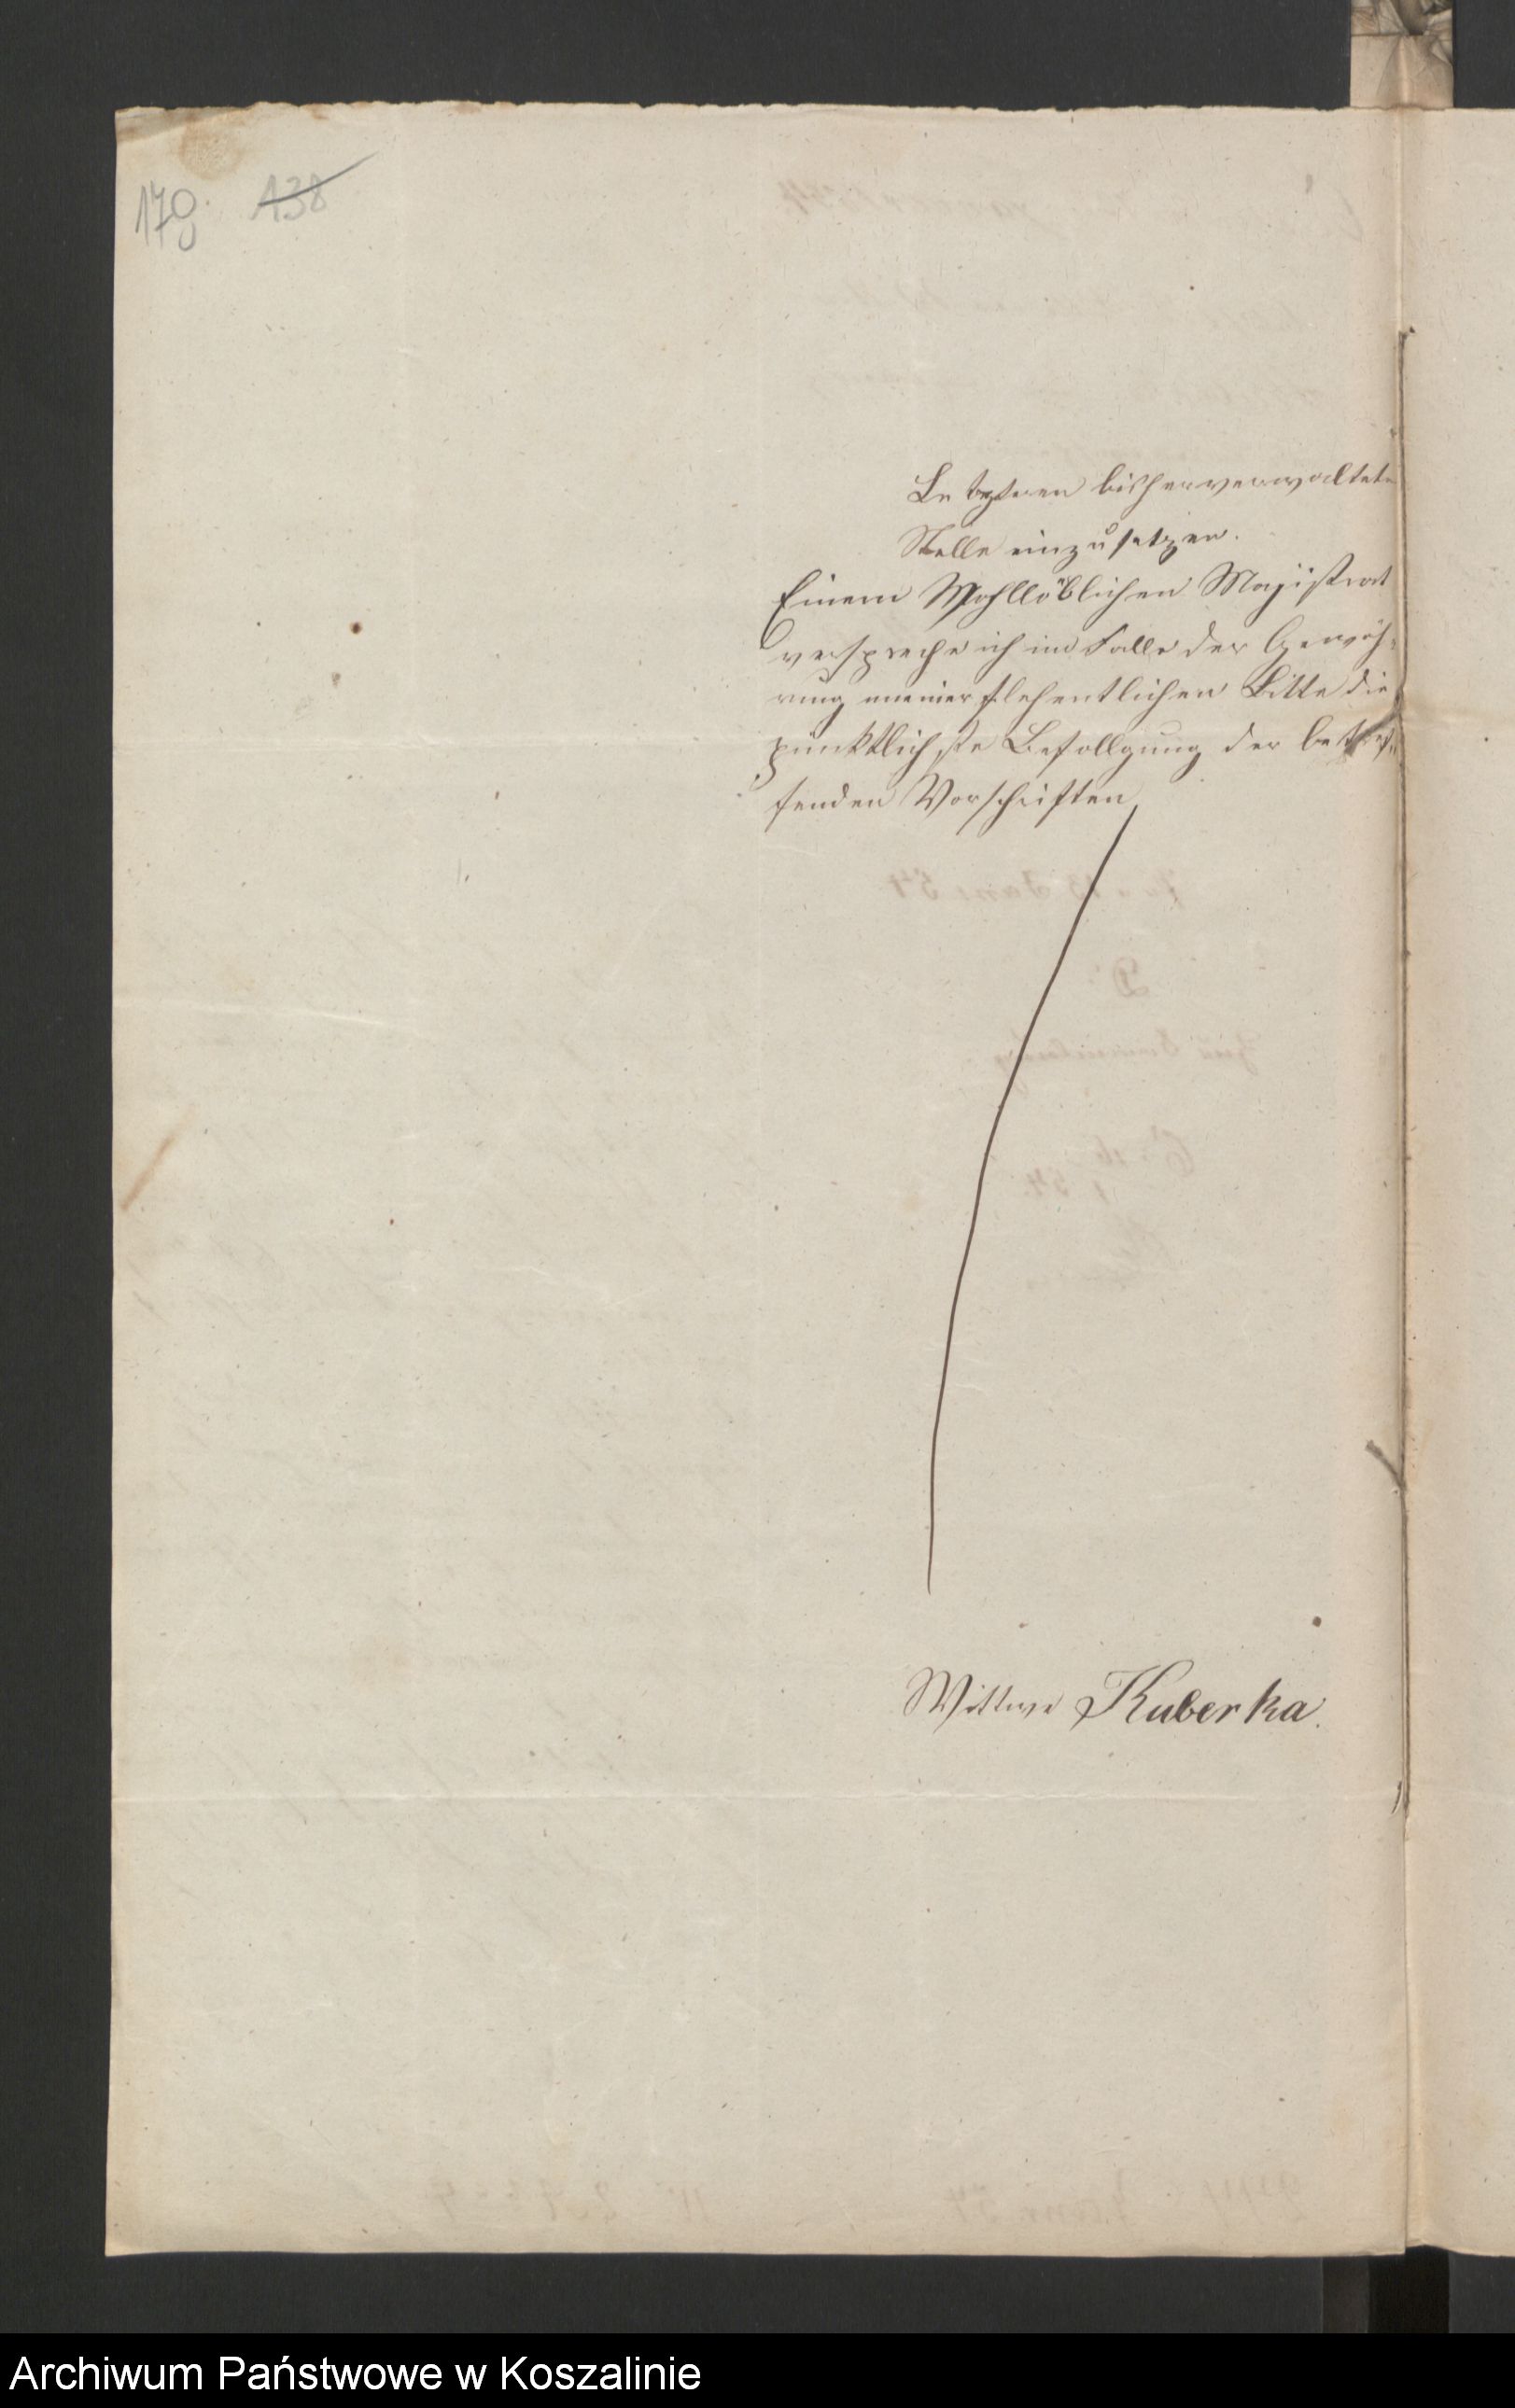 179. 138
Letzteren bisher verwaltete
Stelle einzusetzen.
Einem Wohllöblichen Magistrat
verspreche ich im Falle der Gewäh-
rung meiner flehentlichen Bitte die
pünktlichste Befollgung der betref-
fenden Vorschriften
Wittwe Kuberka.
Archiwum Państwowe w Koszalinie